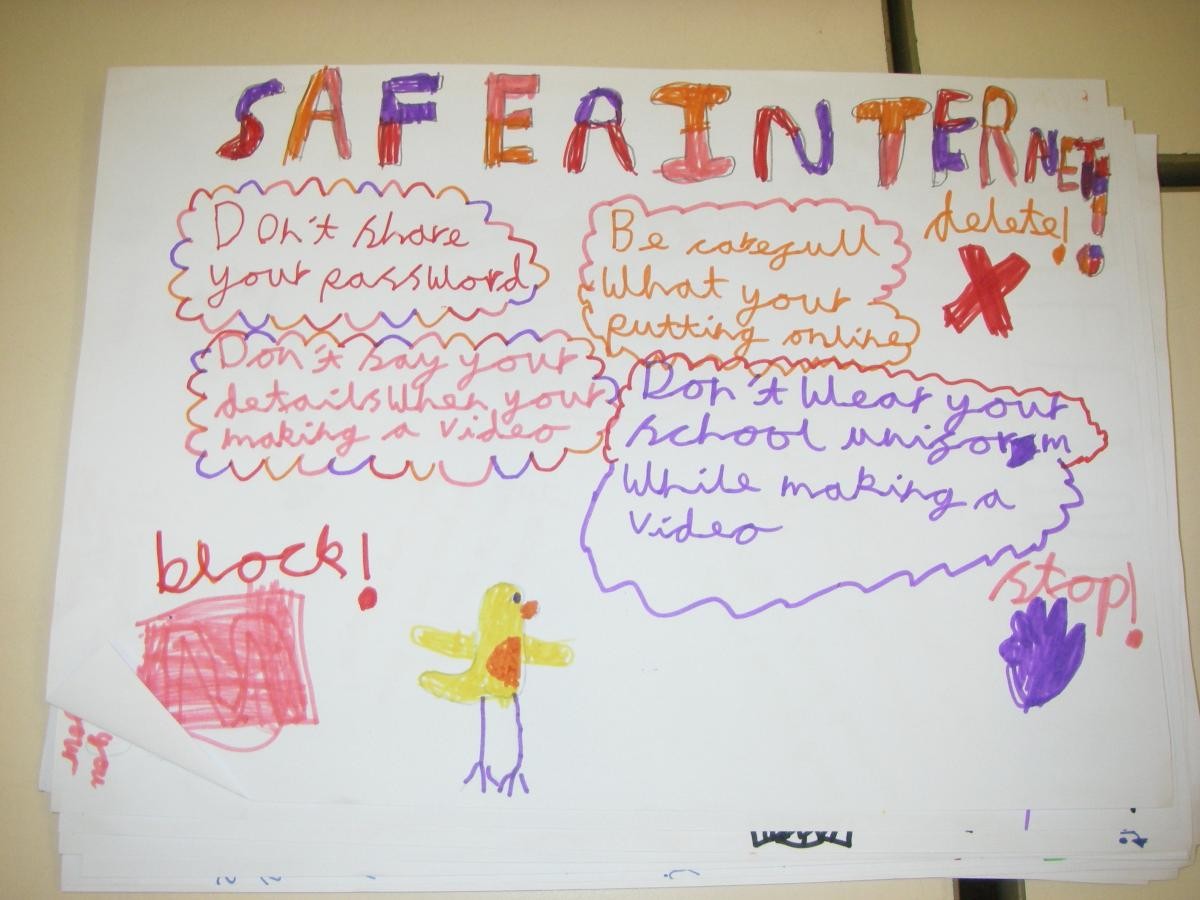 SAFER INTERNET!
Don't share
your password
Be carefull
What your
putting online
delete!
Don't say your
details When your
making a video
Don't Wear your
school uniform
While making a
video
block!
stop!
you